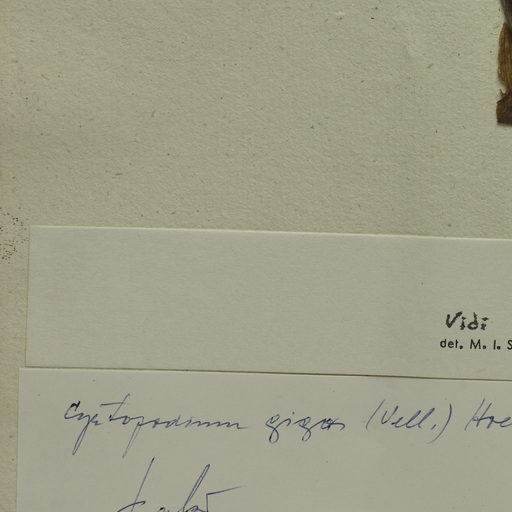 Vidi
det. M. I. S
Cyrtopodium gigas (Vell.) Hoe